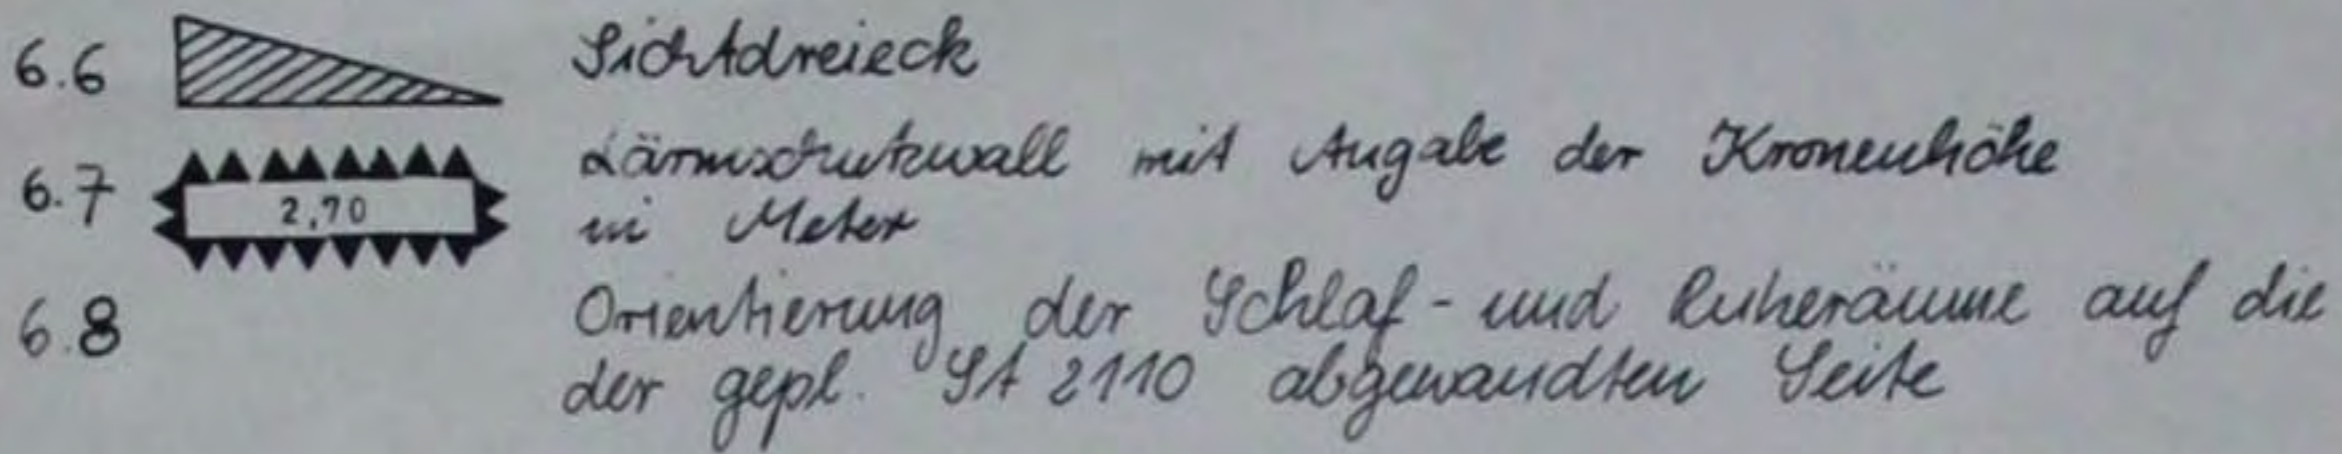 6.6 Sichtdreieck
6.7 2,70 Lärmschutzwall mit Angabe der Kronenhöhe
in Meter
6.8 Orientierung der Schlaf- und Ruheräume auf die
der gepl. St 2110 abgewandten Seite